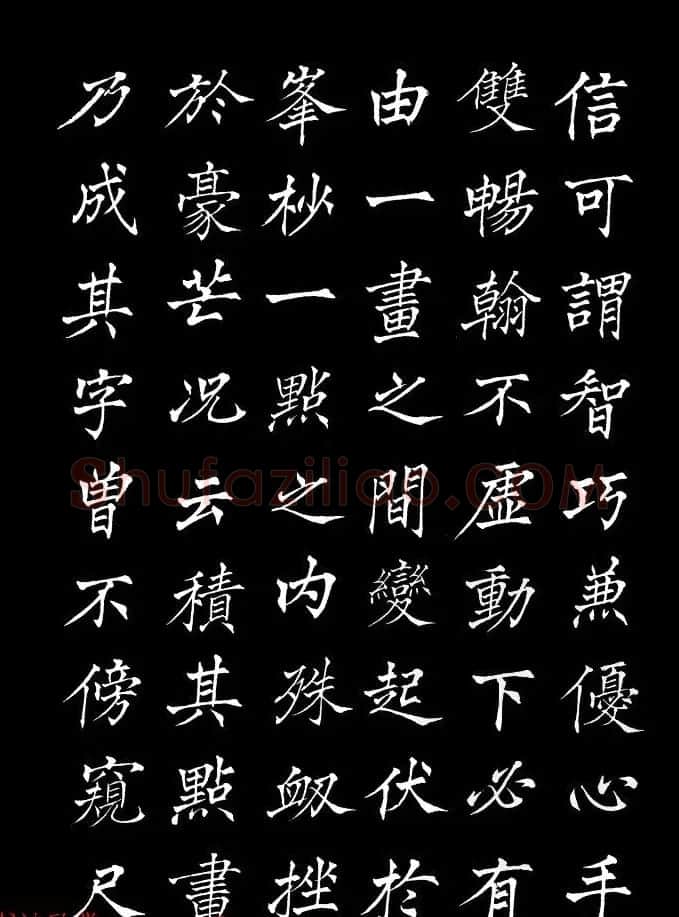 信可謂智巧兼優心手
雙暢翰不虛動下必有
由一畫之間變起伏於
峯杪一點之内殊衂挫
於豪芒况云積其點畫
乃成其字曾不傍窺尺
Shufaziliao.COM